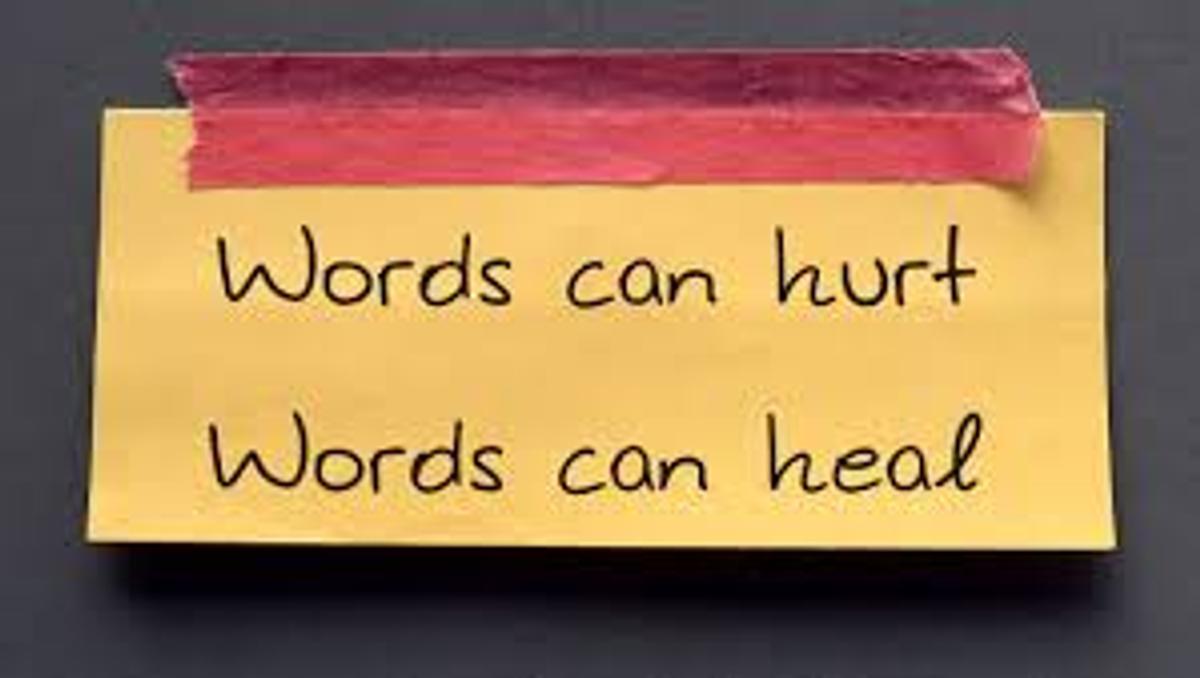 Words can hurt
Words can heal